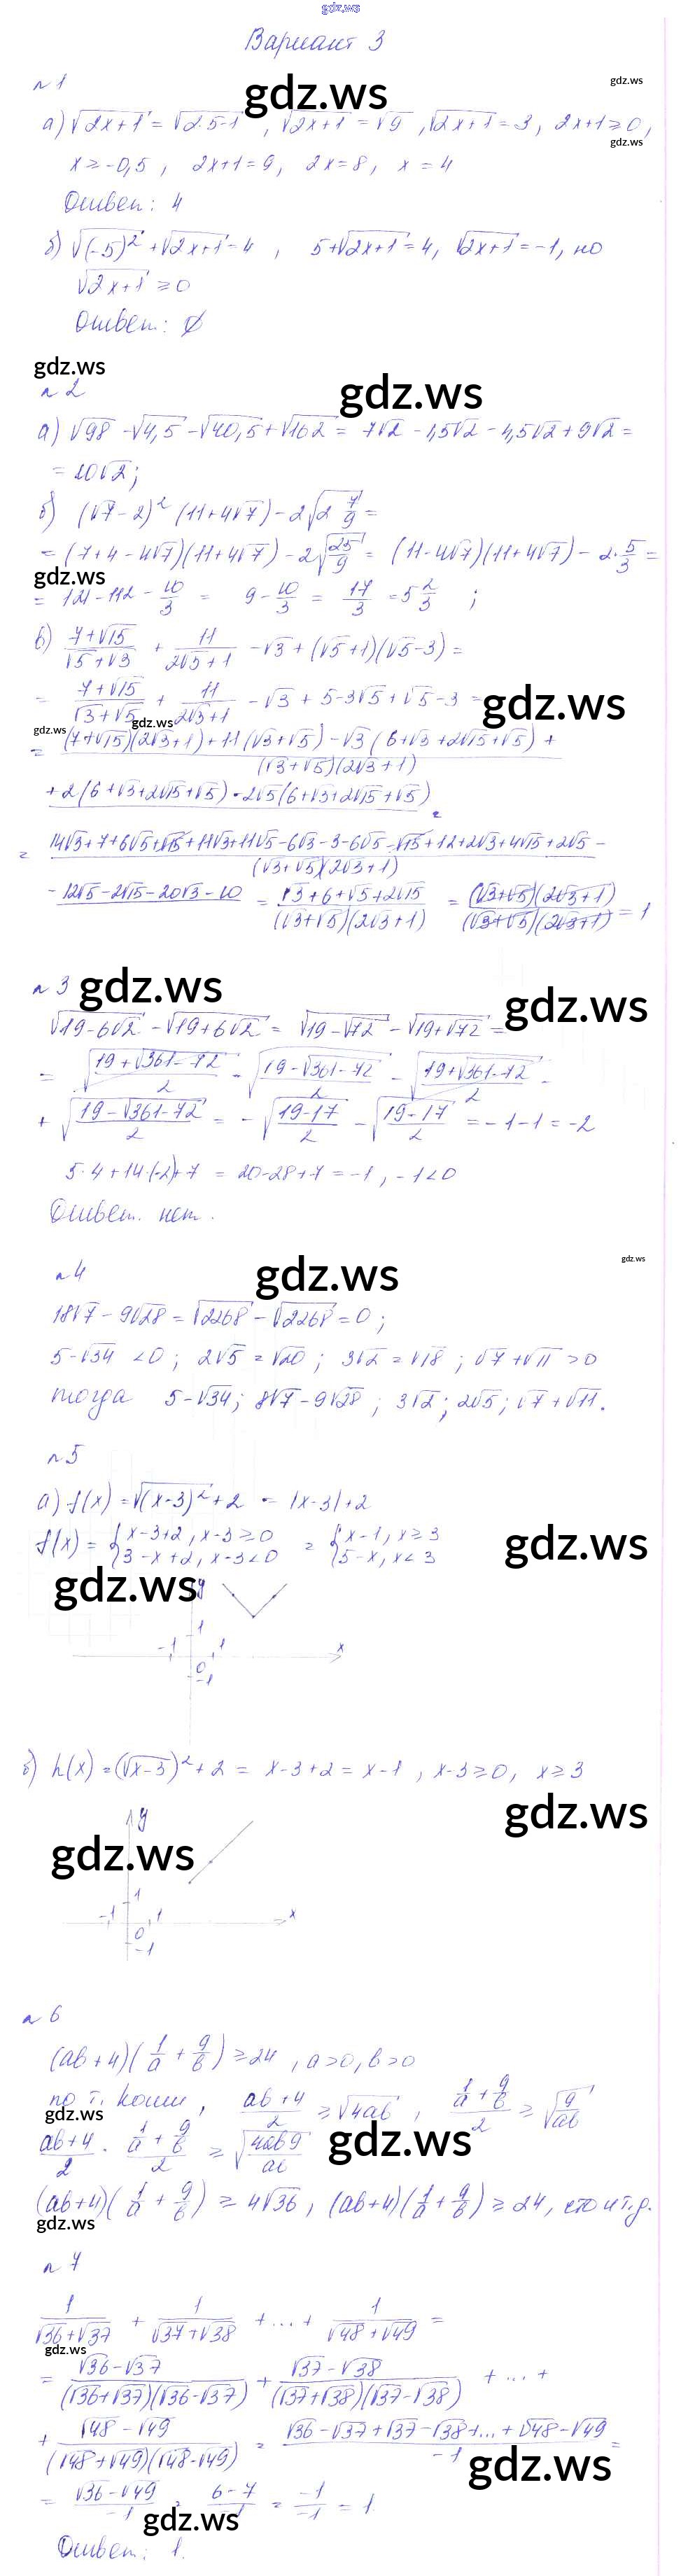 gdz.ws
Вариант 3
n 1
gdz.ws
gdz.ws
а) √(2x+1) = √(2·5-1), √(2x+1) = √9, √(2x+1) = 3, 2x+1 ≥ 0,
gdz.ws
x ≥ -0,5, 2x+1 = 9, 2x = 8, x = 4
Ответ: 4
б) √((-5)²) + √(2x+1) = 4, 5+√(2x+1) = 4, √(2x+1) = -1, но
√(2x+1) ≥ 0
Ответ: ∅
gdz.ws
gdz.ws
n 2
а) √98 - √4,5 - √40,5 + √162 = 7√2 - 1,5√2 - 4,5√2 + 9√2 =
= 10√2;
б) (√7 - 2)² (11+4√7) - 2√(2 7/9) =
= (7+4-4√7)(11+4√7) - 2√(25/9) = (11-4√7)(11+4√7) - 2·5/3 =
gdz.ws
= 121-112 - 10/3 = 9 - 10/3 = 17/3 = 5 2/3;
в) (7+√15)/(√5+√3) + 11/(2√3+1) - √3 + (√5+1)(√5-3) =
= (7+√15)/(√3+√5) + 11/(2√3+1) - √3 + 5-3√5+√5-3 =
gdz.ws
gdz.ws
gdz.ws
= ((7+√15)(2√3+1)+11(√3+√5) - √3(6+√3+2√15+√5) +
(√3+√5)(2√3+1)
+2(6+√3+2√15+√5) - 2√5(6+√3+2√15+√5) =
= 14√3+7+6√5+√15+11√3+11√5-6√3-3-6√5-√15+12+2√3+4√15+2√5 -
(√3+√5)(2√3+1)
-12√5-2√15-20√3-10 = (√3+6+√5+2√15)/((√3+√5)(2√3+1)) = ((√3+√5)(2√3+1))/((√3+√5)(2√3+1)) = 1
n 3
gdz.ws
gdz.ws
√(19-6√2) - √(19+6√2) = √(19-√72) - √(19+√72) =
= √((19+√(361-72))/2) - √((19-√(361-72))/2) - √((19+√(361-72))/2) -
+ √((19-√(361-72))/2) = -√((19-17)/2) - √((19-17)/2) = -1-1 = -2
5·4+14·(-2)+7 = 20-28+7 = -1, -1<0
Ответ. нет.
n 4
gdz.ws
gdz.ws
18√7 - 9√28 = √2268 - √2268 = 0;
5-√34 < 0; 2√5 = √20; 3√2 = √18; √7+√11 > 0
тогда 5-√34; 8√7-9√28; 3√2; 2√5; √7+√11.
n 5
а) f(x) = √((x-3)²)+2 = |x-3|+2
f(x) = { x-3+2, x-3≥0 = { x-1, x≥3
3-x+2, x-3<0 5-x, x<3
gdz.ws
gdz.ws
y
1
-1 1 x
0
-1
б) h(x) = (√(x-3))²+2 = x-3+2 = x-1, x-3≥0, x≥3
gdz.ws
y
gdz.ws
1
-1 1 x
0
-1
n 6
(ab+4)(1/a + 9/b) ≥ 24, a>0, b>0
по т. Коши, (ab+4)/2 ≥ √(4ab), (1/a + 9/b)/2 ≥ √(9/ab)
gdz.ws
gdz.ws
(ab+4)/2 · (1/a + 9/b)/2 ≥ √(4ab9/ab)
(ab+4)(1/a + 9/b) ≥ 4√36, (ab+4)(1/a + 9/b) ≥ 24, что и т.д.
gdz.ws
n 7
1/(√36+√37) + 1/(√37+√38) + ... + 1/(√48+√49) =
gdz.ws
= (√36-√37)/((√36+√37)(√36-√37)) + (√37-√38)/((√37+√38)(√37-√38)) + ... +
+ (√48-√49)/((√48+√49)(√48-√49)) = (√36-√37+√37-√38+...+√48-√49)/(-1) =
gdz.ws
= (√36-√49)/(-1) = (6-7)/(-1) = (-1)/(-1) = 1.
gdz.ws
Ответ: 1.